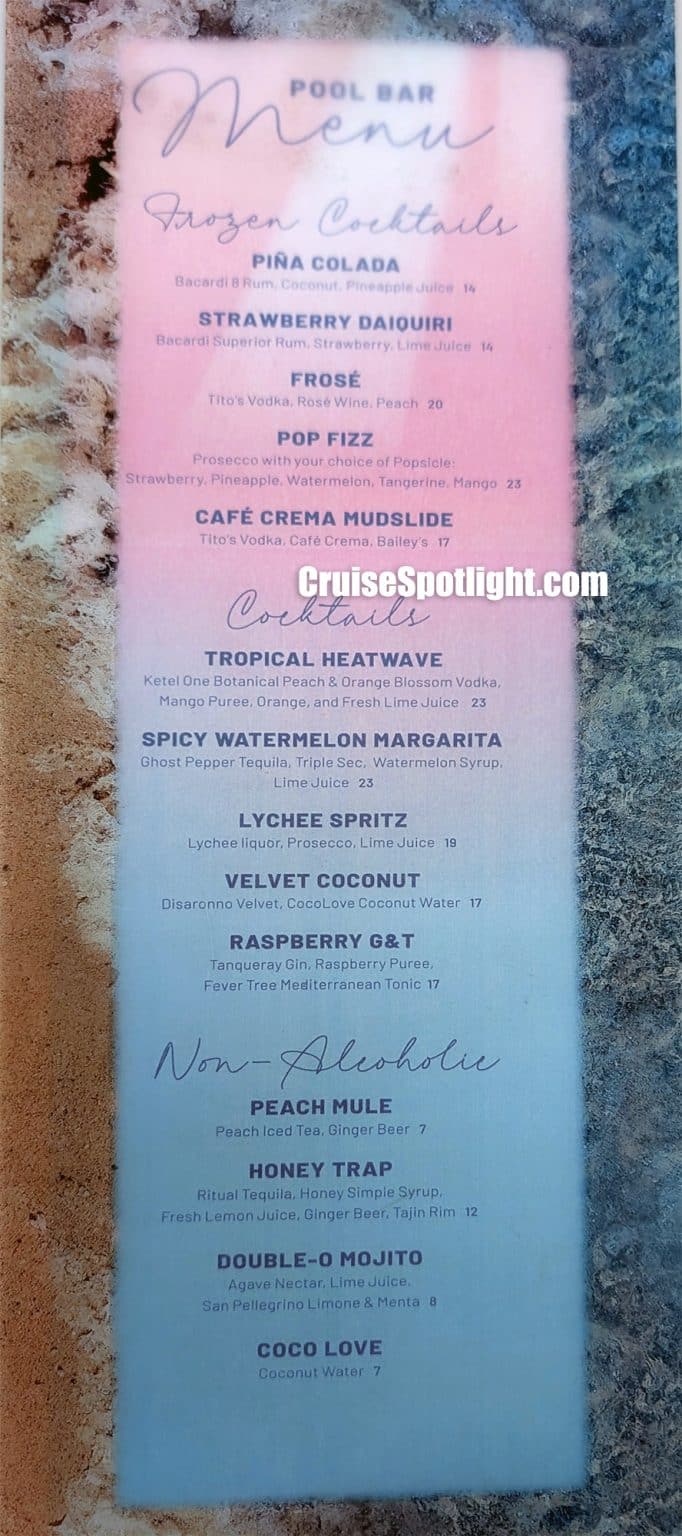 POOL BAR
Menu
Frozen Cocktails
PIÑA COLADA
Bacardi 8 Rum, Coconut, Pineapple Juice 14
STRAWBERRY DAIQUIRI
Bacardi Superior Rum, Strawberry, Lime Juice 14
FROSÉ
Tito's Vodka, Rosé Wine, Peach 20
POP FIZZ
Prosecco with your choice of Popsicle:
Strawberry, Pineapple, Watermelon, Tangerine, Mango 23
CAFÉ CREMA MUDSLIDE
Tito's Vodka, Café Crema, Bailey's 17
CruiseSpotlight.com
Cocktails
TROPICAL HEATWAVE
Ketel One Botanical Peach & Orange Blossom Vodka,
Mango Puree, Orange, and Fresh Lime Juice 23
SPICY WATERMELON MARGARITA
Ghost Pepper Tequila, Triple Sec, Watermelon Syrup,
Lime Juice 23
LYCHEE SPRITZ
Lychee liquor, Prosecco, Lime Juice 19
VELVET COCONUT
Disaronno Velvet, CocoLove Coconut Water 17
RASPBERRY G&T
Tanqueray Gin, Raspberry Puree,
Fever Tree Mediterranean Tonic 17
Non-Alcoholic
PEACH MULE
Peach Iced Tea, Ginger Beer 7
HONEY TRAP
Ritual Tequila, Honey Simple Syrup,
Fresh Lemon Juice, Ginger Beer, Tajin Rim 12
DOUBLE-O MOJITO
Agave Nectar, Lime Juice,
San Pellegrino Limone & Menta 8
COCO LOVE
Coconut Water 7